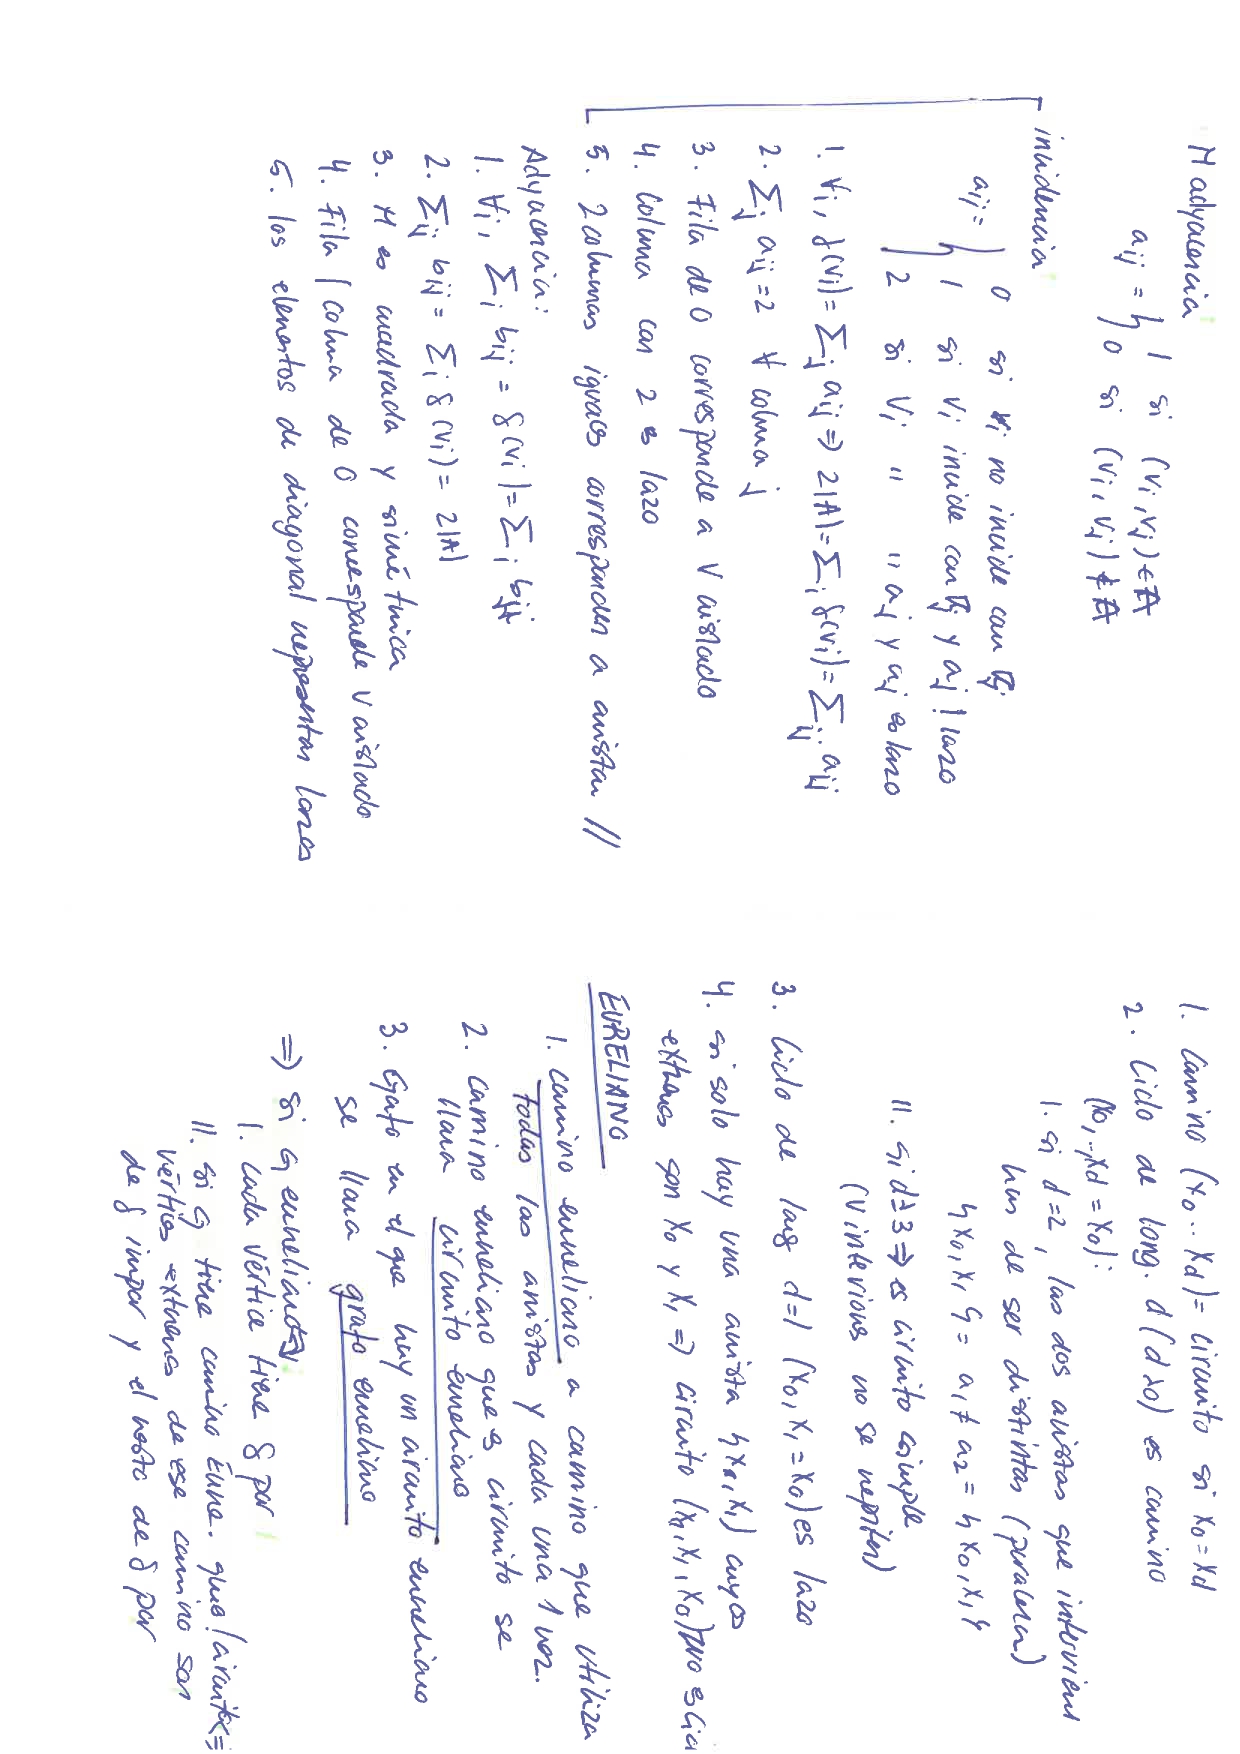 M adyacencia
aij = { 1 si (vi, vj) ∈ A
0 si (vi, vj) ∉ A
incidencia
aij = { 0 si vi no incide con aj
1 si vi incide con aj y aj ! lazo
2 si vi " " aj y aj es lazo
1. ∀i, δ(vi) = Σj aij ⇒ 2|A| = Σi δ(vi) = Σij aij
2. Σj aij = 2 ∀ colma j
3. Fila de 0 corresponde a V aislado
4. Columa con 2 es lazo
5. 2 columnas iguales corresponden a aristas //
Adyacencia:
1. ∀i, Σi bij = δ(vi) = Σi bji
2. Σij bij = Σi δ(vi) = 2|A|
3. M es cuadrada y simétrica
4. Fila / colma de 0 corresponde V aislado
5. los elementos de diagonal representan lazos
1. Camino (x0 .. xd) = circuito si x0 = xd
2. Ciclo de long. d (d≥0) es camino
(x0, .., xd = x0):
I. si d=2, las dos aristas que intervienen
han de ser distintas (paralelas)
{x0, x1} = a1 ≠ a2 = {x0, x1}
II. si d≥3 ⇒ es circuito simple
(V interiores no se repiten)
3. Ciclo de long d=1 (x0, x1 = x0) es lazo
4. si solo hay una arista {x0, x1} cuyos
extremos son x0 y x1 ⇒ circuito (x0, x1, x0) no es cic
EURELIANO
1. camino eureliano a camino que utiliza
todas las aristas y cada una 1 vez.
2. camino eureliano que es circuito se
llama circuito eureliano
3. Grafo en el que hay un circuito eureliano
se llama grafo eureliano
⇒ si G eureliano:
I. cada vértice tiene δ par
II. si G tiene camino eure. que !circuito ⇒
vértices extremos de ese camino son
de δ impar y el resto de δ par